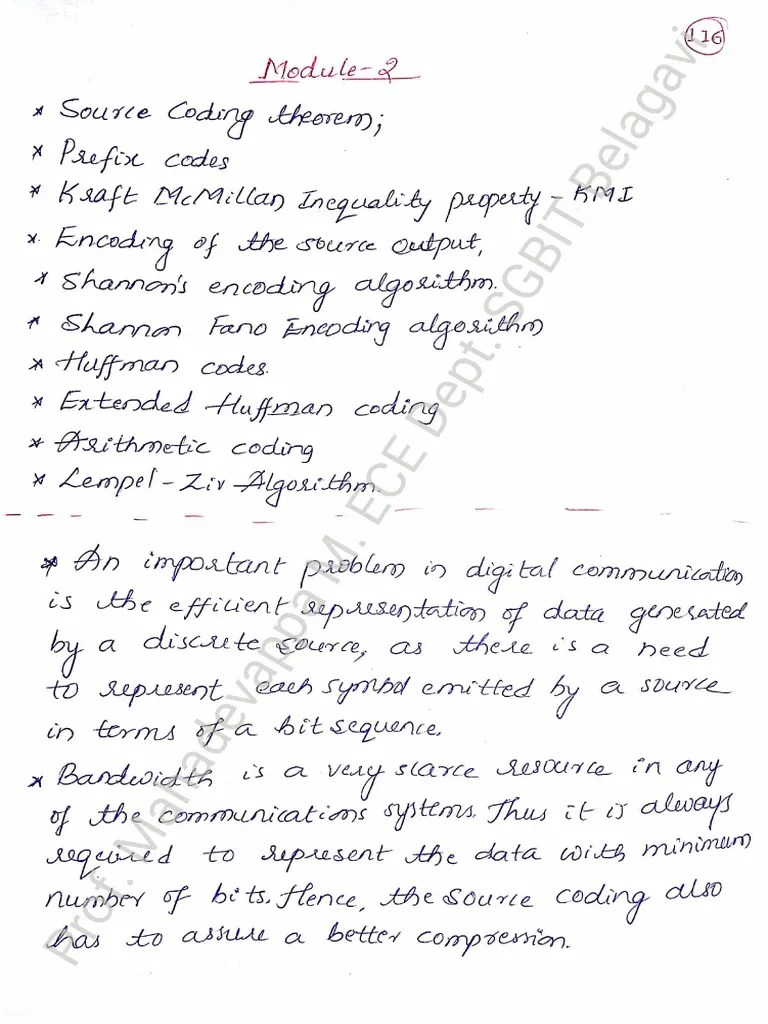 116
Module-2
* Source Coding theorem;
* Prefix codes
* Kraft McMillan Inequality property - KMI
* Encoding of the source output,
* Shannon's encoding algorithm.
* Shannon Fano Encoding algorithm
* Huffman codes.
* Extended Huffman coding
* Arithmetic coding
* Lempel-Ziv Algorithm.
* An important problem in digital communication
is the efficient representation of data generated
by a discrete source, as there is a need
to represent each symbol emitted by a source
in terms of a bit sequence.
* Bandwidth is a very scarce resource in any
of the communications systems. Thus it is always
required to represent the data with minimum
number of bits. Hence, the source coding also
has to assure a better compression.
Prof. Mahadevappa M. ECE Dept. SGBIT Belagavi